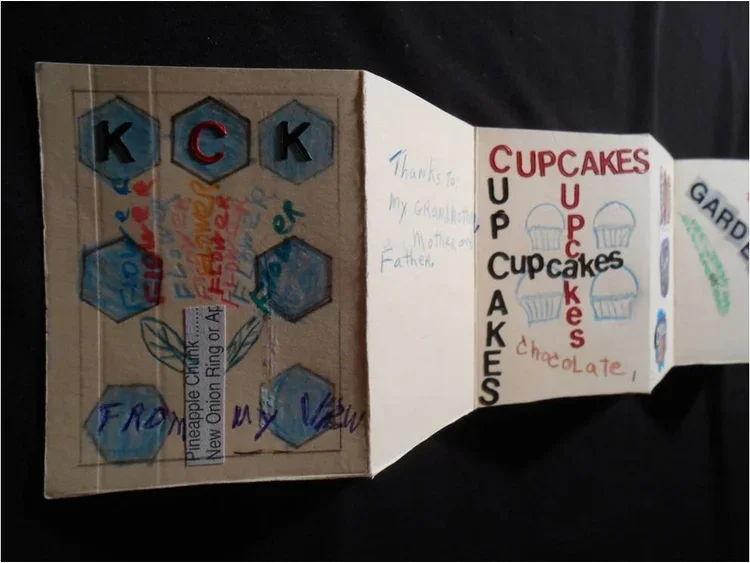 K C K
FLOWER
FLOWER
FLOWER
FLOWER
FLOWER
FLOWER
Flower
Pineapple Chunk ......
New Onion Ring or Ap
FROM MY VIEW
Thanks to.
My GRandMother,
Mother and
Father.
CUPCAKES
CUPCAKES
CUPCakes
Cupcakes
Chocolate,
GARDE